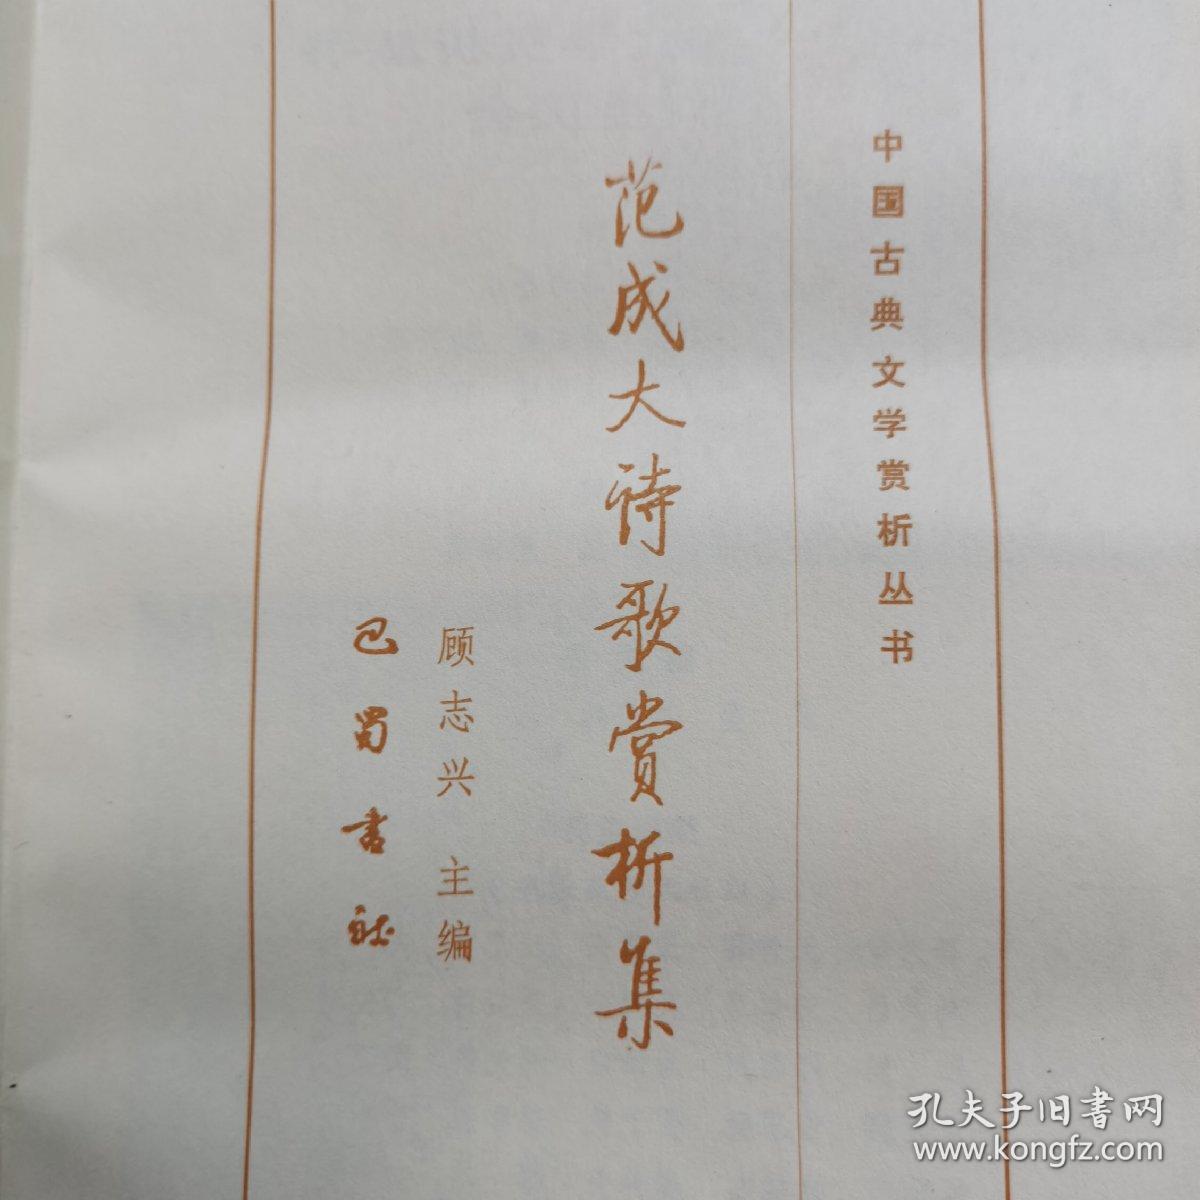 中国古典文学赏析丛书
范成大诗歌赏析集
顾志兴 主编
巴蜀书社
孔夫子旧书网
www.kongfz.com